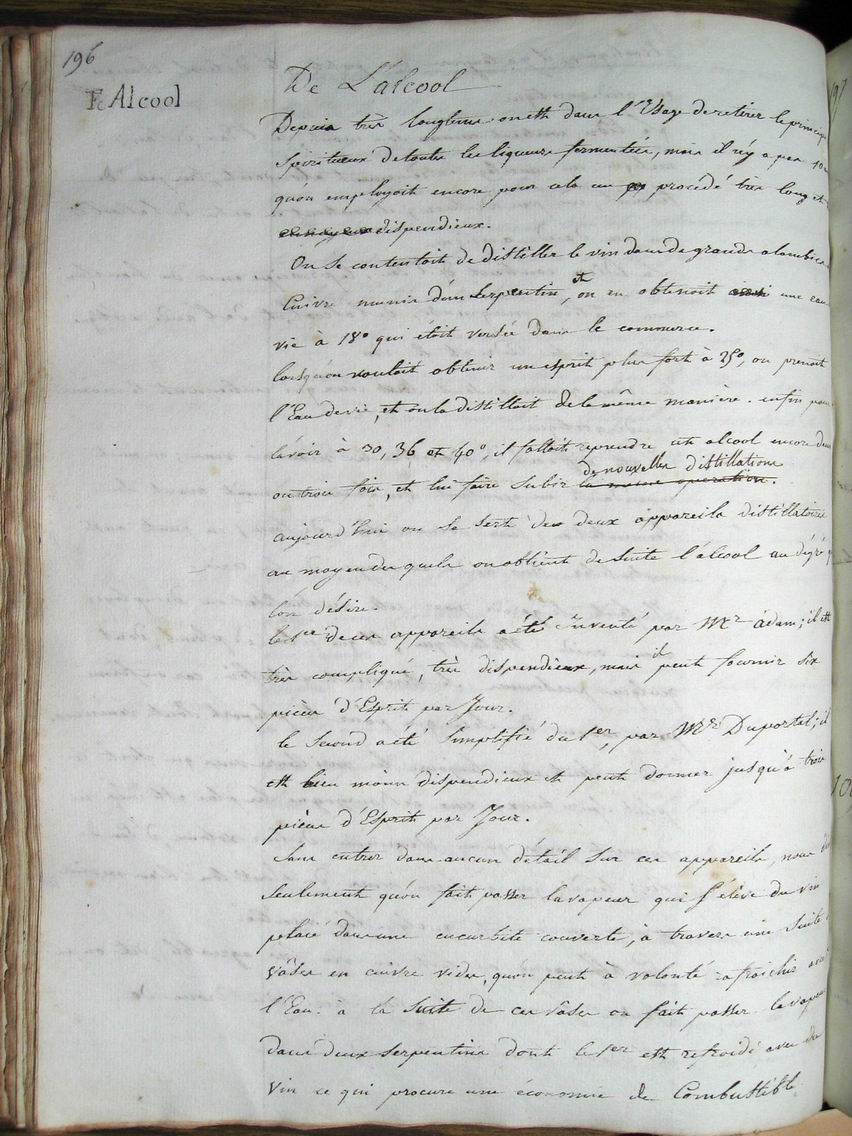 196
De L'alcool
F. Alcool
Depuis très longtems on est dans l'Usage de retirer le principe
Spiritueux de toutes les liqueurs fermentées, mais il n'y a pas 10
qu'on employoit encore pour cela un procédé très long et
dispendieux.
On se contentoit de distiller le vin dans de grands alambics
Cuivre munis d'un Serpentin, et on en obtenoit une eau
vie à 18° qui étoit versée dans le commerce.
lorsqu'on vouloit obtenir un esprit plus fort à 25°, on prenoit
l'Eau de vie, et on la distilloit de la même manière. enfin pour
l'avoir à 30, 36 et 40°, il falloit reprendre cet alcool encore deux
ou trois fois, et lui faire subir la meme operation.
de nouvelles distillations
aujourd'hui on se sert de deux appareils distillatoires
au moyen desquels on obtient de suite l'alcool au dégré q
l'on désire.
le 1er de ces appareils a été Inventé par Mr adam; il est
très compliqué, très dispendieux, mais il peut fournir six
pièces d'Esprit par Jour.
le Second a été Simplifié du 1er, par Mr Duportal; il
est bien moins dispendieux et peut donner jusqu'à trois
pièces d'Esprit par Jour.
Sans entrer dans aucun détail Sur ces appareils, nous
Seulement qu'on fait passer la vapeur qui s'élève du vin
placé dans une cucurbite couverte, à travers une Suite
Vâses en cuivre vides, qu'on peut à volonté rafraichir avec
l'Eau. à la Suite de ces vâses on fait passer la vapeur
dans deux Serpentins dont le 1er est refroidi avec du
Vin ce qui procure une économie de Combustible
197